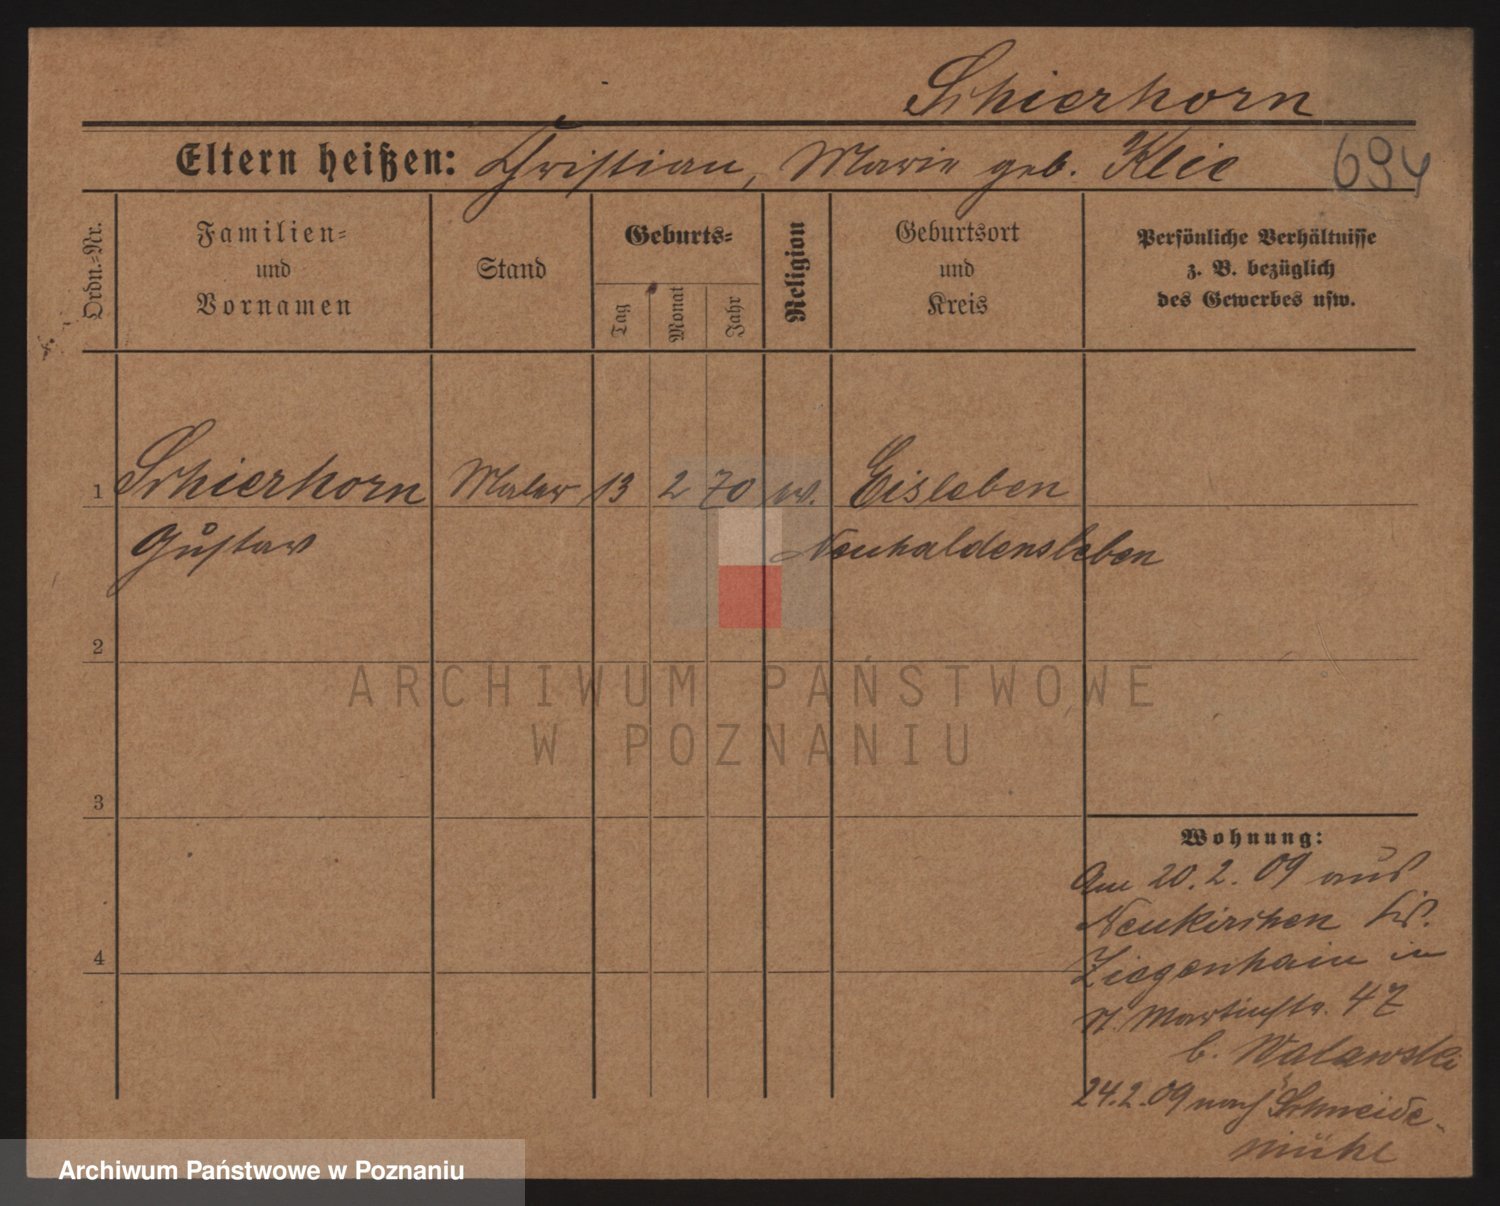 Schierhorn
Eltern heißen: Christian, Marie geb. Klie
694
Ordn.-Nr.
Familien-
und
Vornamen
Stand
Geburts-
Tag
Monat
Jahr
Religion
Geburtsort
und
Kreis
Persönliche Verhältnisse
z. B. bezüglich
des Gewerbes usw.
1 Schierhorn Maler 13 2 70 ev. Eisleben
Gustav Neuhaldensleben
2
ARCHIWUM PAŃSTWOWE
W POZNANIU
3
Wohnung:
Am 20.2.09 aus
Neukirchen Kr.
4
Ziegenhain in
St. Martinstr. 47
b. Walewski
24.2.09 nach Schneide-
mühl
Archiwum Państwowe w Poznaniu